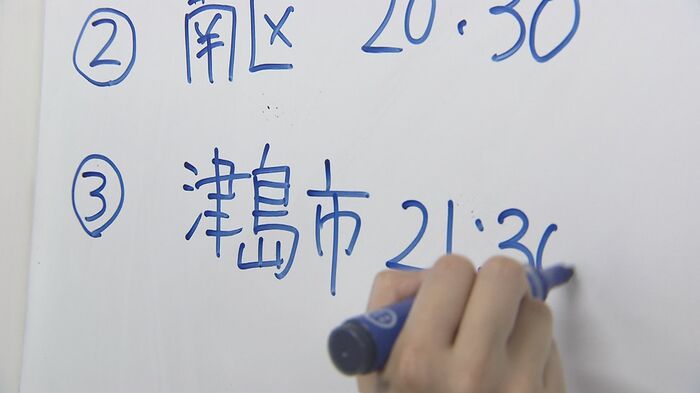 ② 南区 20:30
③ 津島市 21:30